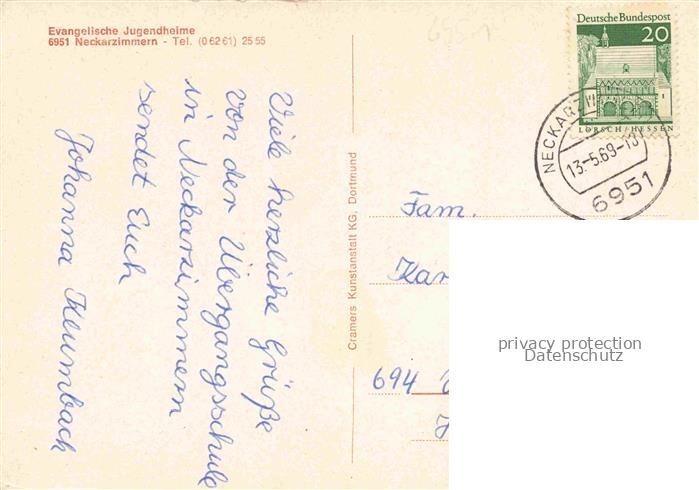 Evangelische Jugendheime
6951 Neckarzimmern - Tel. (0 62 61) 25 55
Viele herzliche Grüße
von der Übergangsschule
in Neckarzimmern
sendet Euch
Johanna Klumbach
Cramers Kunstanstalt KG, Dortmund
Deutsche Bundespost
20
LORSCH/HESSEN
NECKARZI
13.-5.69-13
6951
Fam.
Kar
694
privacy protection
Datenschutz